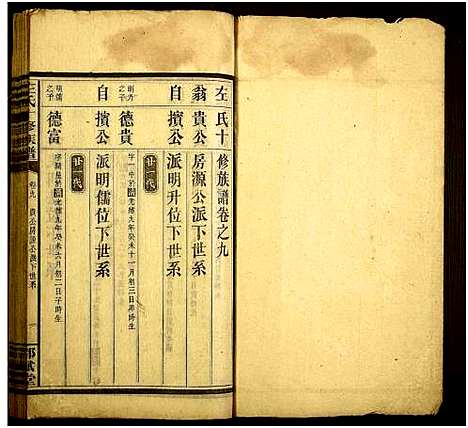 左氏十修族譜卷之九
翁貴公房源公派下世系
自擯公派明升位下世系
廿一代
明升之子
德貴
字一中
光緒九年癸未十一月初三日
時生
自擯公派明儒位下世系
廿一代
明儒之子
德富
光緒九年癸未六月初二日子時生
左氏十修族譜
卷九
貴公房源公派下世系